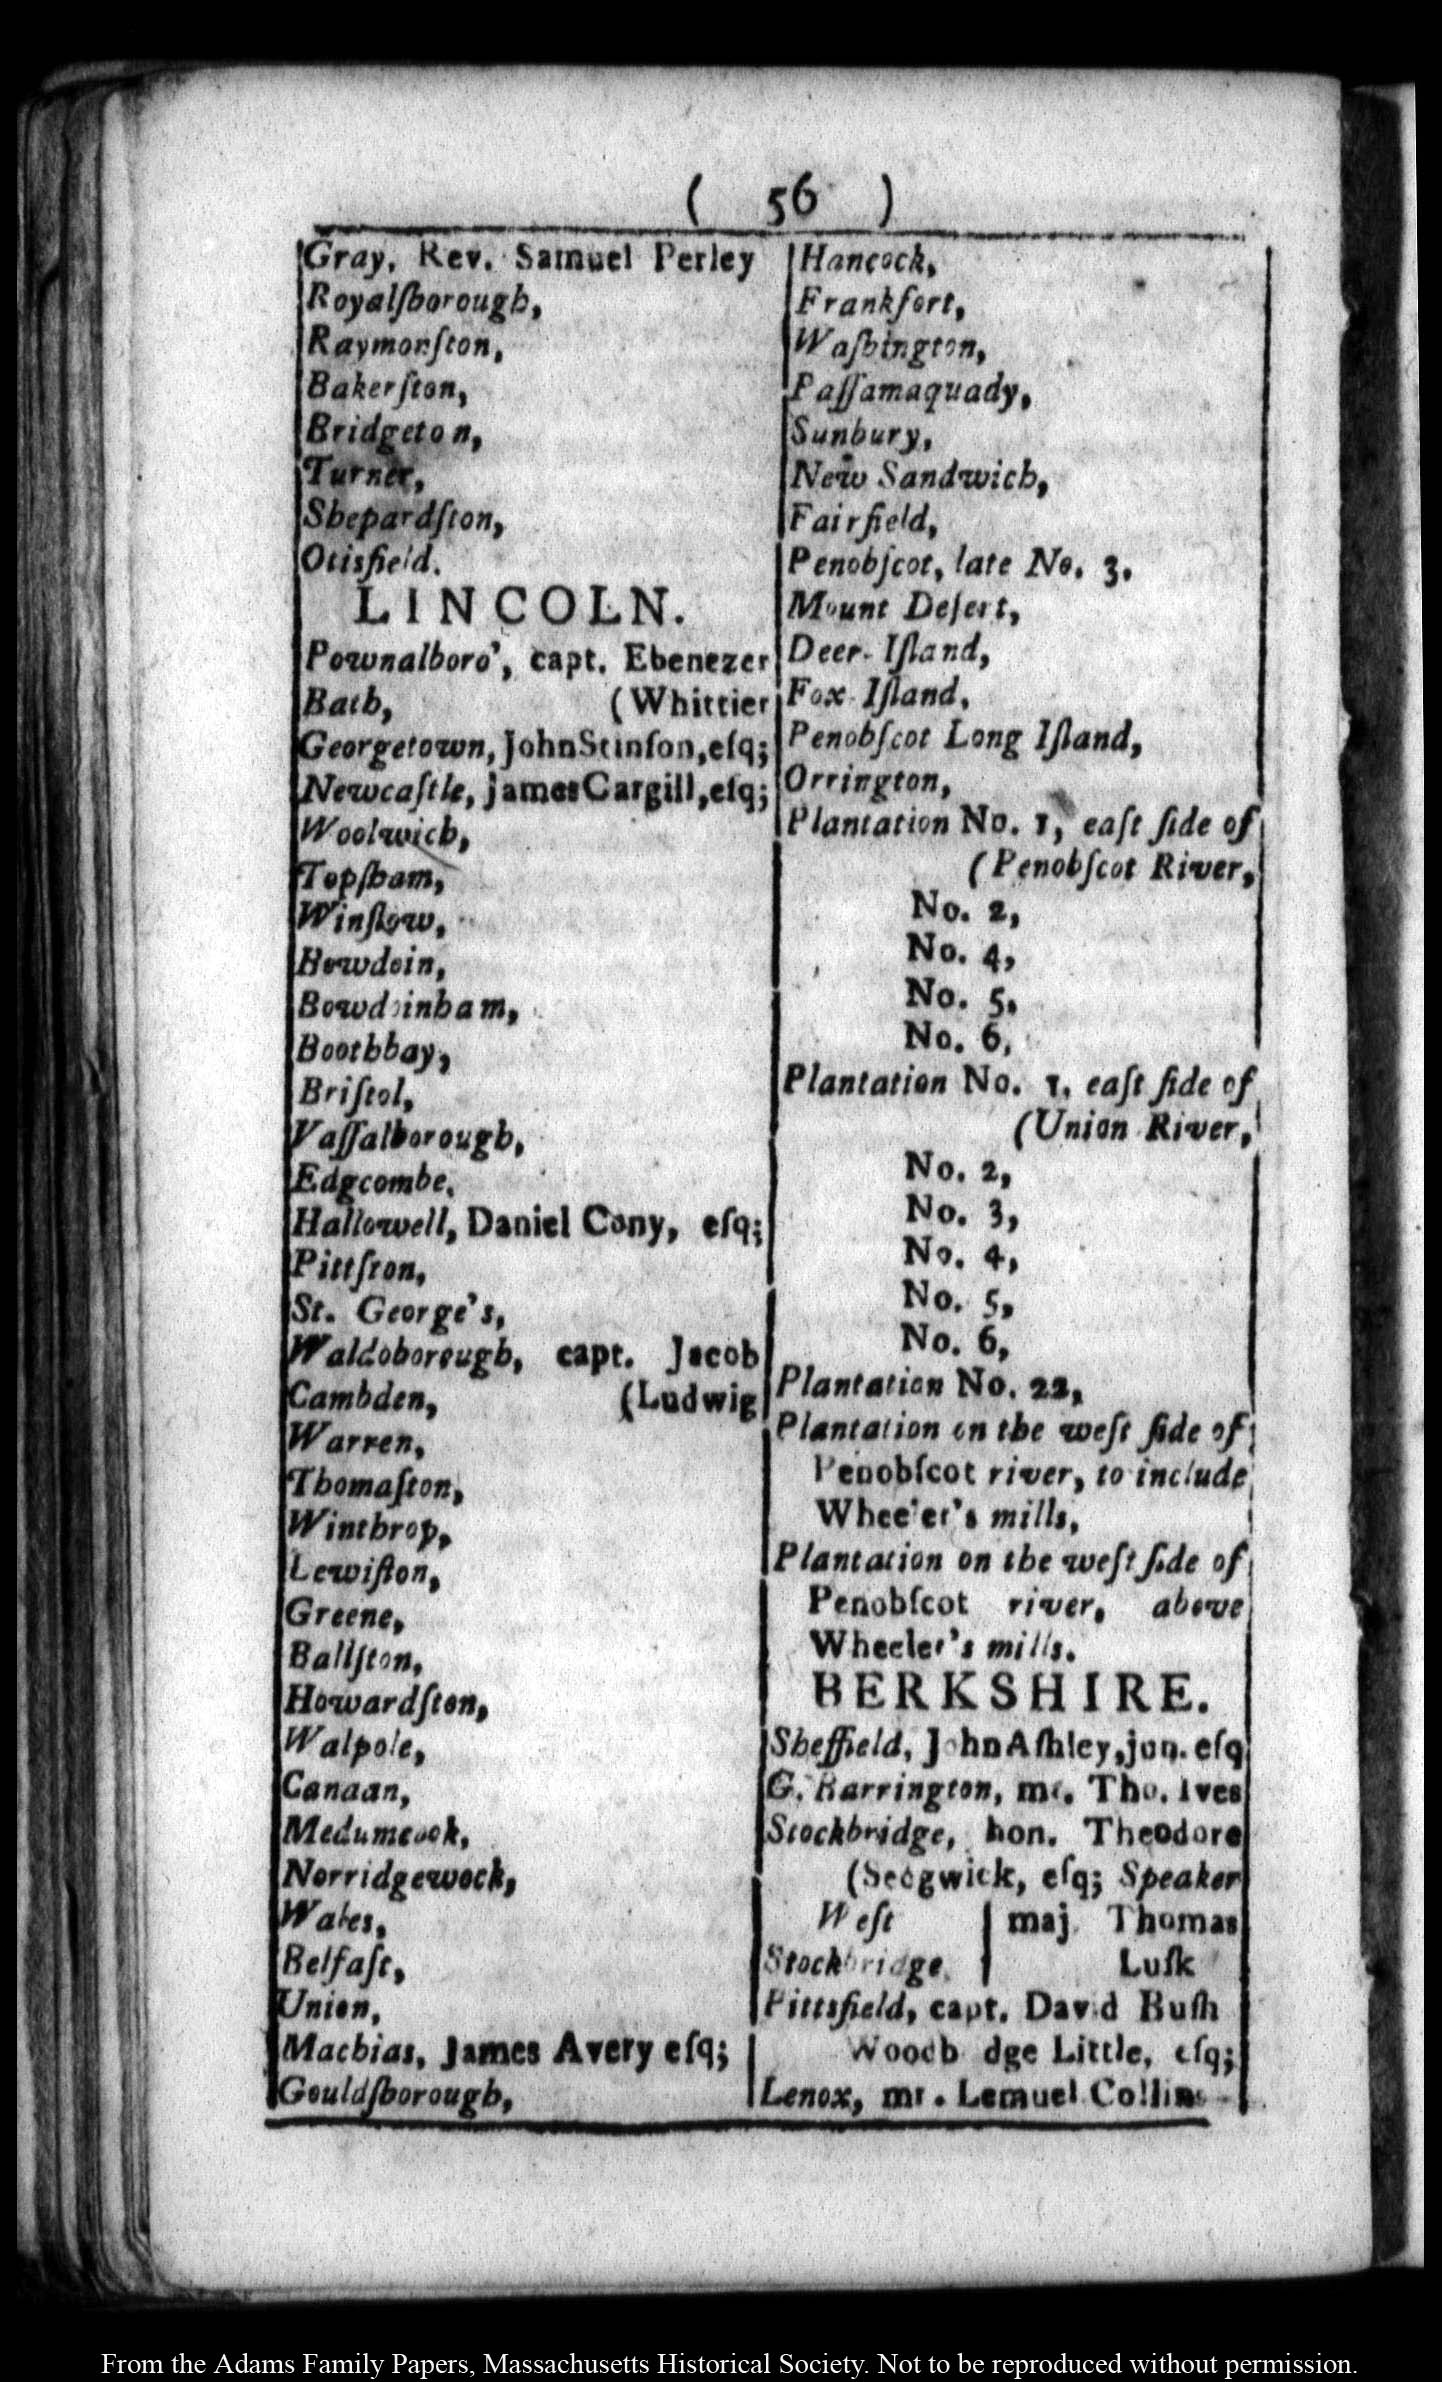 ( 56 )
Gray, Rev. Samuel Perley
Royalſborough,
Raymonſton,
Bakerſton,
Bridgeton,
Turner,
Shepardſton,
Otisfield.
LINCOLN.
Pownalboro', capt. Ebenezer
Bath, (Whittier
Georgetown, John Stinſon, eſq;
Newcaſtle, James Cargill, eſq;
Woolwich,
Topſham,
Winſlow,
Bowdoin,
Bowdoinham,
Boothbay,
Briſtol,
Vaſſalborough,
Edgcombe,
Hallowell, Daniel Cony, eſq;
Pittſton,
St. George's,
Waldoborough, capt. Jacob
Cambden, (Ludwig
Warren,
Thomaſton,
Winthrop,
Lewiſton,
Greene,
Ballſton,
Howardſton,
Walpole,
Canaan,
Medumcook,
Norridgewock,
Wales,
Belfaſt,
Union,
Machias, James Avery eſq;
Gouldſborough,
Hancock,
Frankfort,
Waſhington,
Paſſamaquady,
Sunbury,
New Sandwich,
Fairfield,
Penobſcot, late No. 3.
Mount Deſert,
Deer-Iſland,
Fox-Iſland,
Penobſcot Long Iſland,
Orrington,
Plantation No. 1, eaſt ſide of
(Penobſcot River,
No. 2,
No. 4,
No. 5,
No. 6,
Plantation No. 1, eaſt ſide of
(Union River,
No. 2,
No. 3,
No. 4,
No. 5,
No. 6,
Plantation No. 22,
Plantation on the weſt ſide of
Penobſcot river, to include
Wheeler's mills,
Plantation on the weſt ſide of
Penobſcot river, above
Wheeler's mills.
BERKSHIRE.
Sheffield, John Aſhley, jun. eſq
G. Barrington, mr. Tho. Ives
Stockbridge, hon. Theodore
(Sedgwick, eſq; Speaker
Weſt | maj. Thomas
Stockbridge | Luſk
Pittsfield, capt. David Buſh
Woodbridge Little, eſq;
Lenox, mr. Lemuel Collins
From the Adams Family Papers, Massachusetts Historical Society. Not to be reproduced without permission.